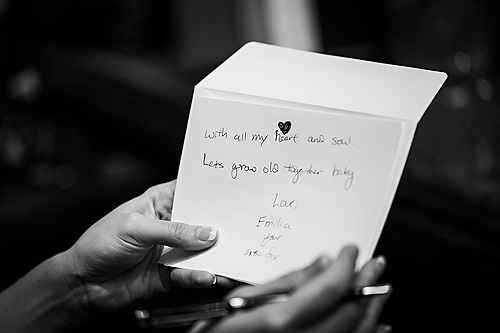 with all my heart and soul.
Lets grow old together baby
Love,
Emilia
your